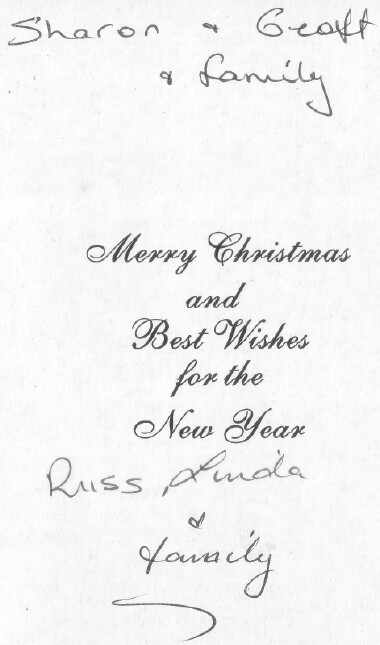 Sharon & Geoff
& family
Merry Christmas
and
Best Wishes
for the
New Year
Russ, Linda
&
family